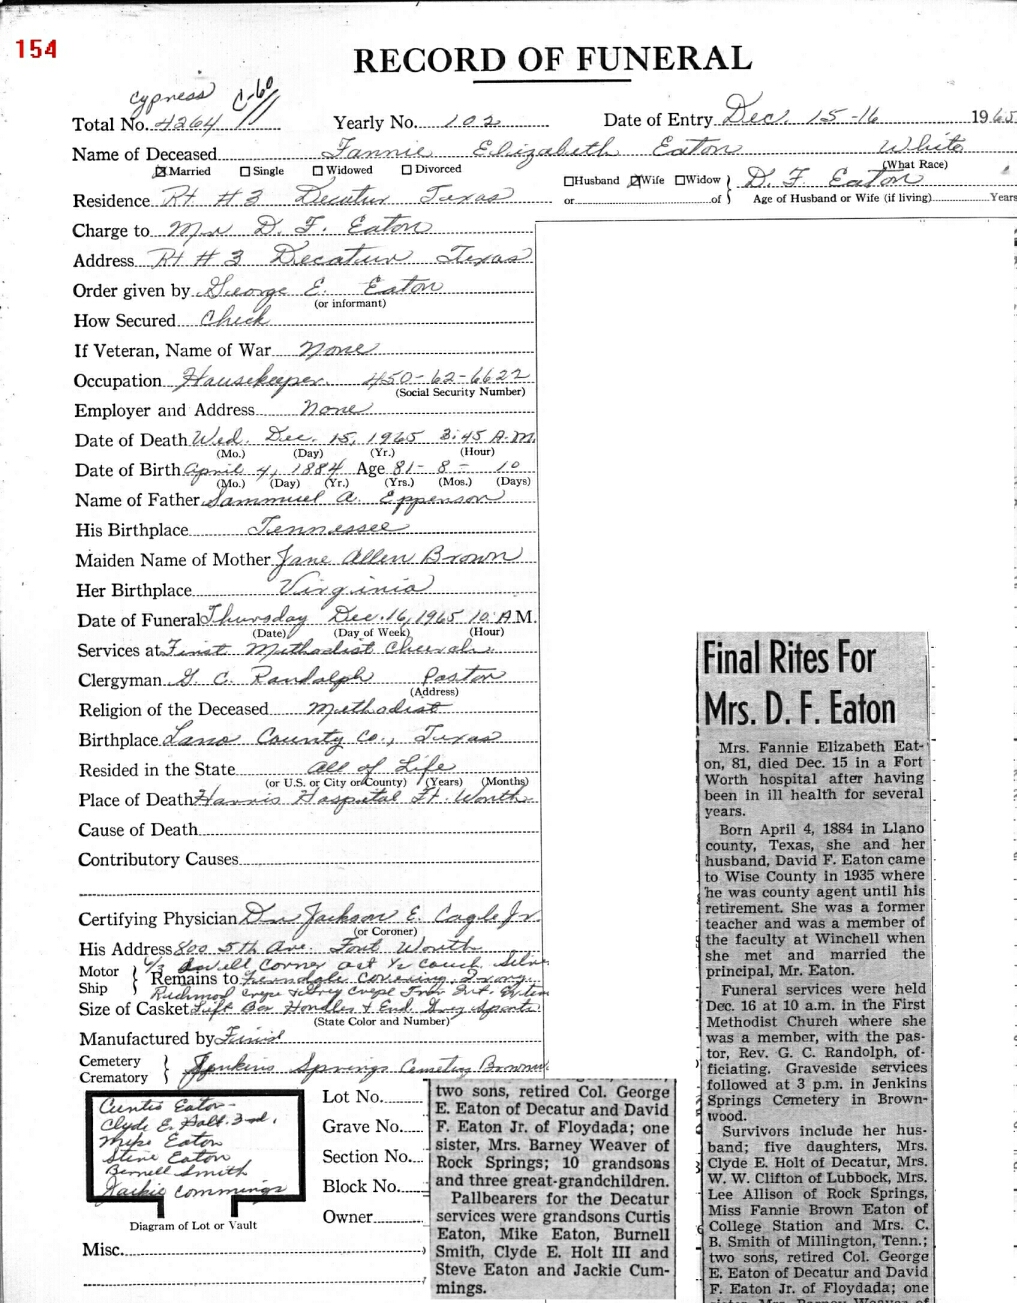 154
RECORD OF FUNERAL
Cypress C-60
Total No. 4264 Yearly No. 102 Date of Entry Dec. 15-16 1965
Name of Deceased Fannie Elizabeth Eaton White
(What Race)
Married Single Widowed Divorced
Husband Wife Widow D. F. Eaton
or of Age of Husband or Wife (if living) Years
Residence Rt # 3 Decatur Texas
Charge to Mr D. F. Eaton
Address Rt # 3 Decatur Texas
Order given by George E. Eaton
(or informant)
How Secured Check
If Veteran, Name of War None
Occupation Housekeeper 450-62-6622
(Social Security Number)
Employer and Address None
Date of Death Wed. Dec. 15, 1965 3:45 A.M.
(Mo.) (Day) (Yr.) (Hour)
Date of Birth April 4, 1884 Age 81- 8 - 10
(Mo.) (Day) (Yr.) (Yrs.) (Mos.) (Days)
Name of Father Sammuel A. Epperson
His Birthplace Tennessee
Maiden Name of Mother Jane Allen Brown
Her Birthplace Virginia
Date of Funeral Thursday Dec. 16, 1965 10 A.M.
(Date) (Day of Week) (Hour)
Services at First Methodist Church
Clergyman G. C. Randolph Pastor
(Address)
Religion of the Deceased Methodist
Birthplace Lano County Co., Texas
Resided in the State All of Life
(or U.S. or City or County) (Years) (Months)
Place of Death Harris Hospital Ft. Worth
Cause of Death
Contributory Causes
Certifying Physician Dr Jackson E. Cagle Jr.
(or Coroner)
His Address 800 5th Ave. Fort Worth
Motor
Ship
Remains to
Size of Casket
(State Color and Number)
Manufactured by
Cemetery
Crematory
Jenkins Springs Cemetery
Curtis Eaton
Clyde E. Holt. 3rd.
Mike Eaton
Steve Eaton
Burnell Smith
Jackie Commings
Diagram of Lot or Vault
Misc.
Lot No.
Grave No.
Section No.
Block No.
Owner
two sons, retired Col. George
E. Eaton of Decatur and David
F. Eaton Jr. of Floydada; one
sister, Mrs. Barney Weaver of
Rock Springs; 10 grandsons
and three great-grandchildren.
Pallbearers for the Decatur
services were grandsons Curtis
Eaton, Mike Eaton, Burnell
Smith, Clyde E. Holt III and
Steve Eaton and Jackie Cum-
mings.
Final Rites For
Mrs. D. F. Eaton
Mrs. Fannie Elizabeth Eat-
on, 81, died Dec. 15 in a Fort
Worth hospital after having
been in ill health for several
years.
Born April 4, 1884 in Llano
county, Texas, she and her
husband, David F. Eaton came
to Wise County in 1935 where
he was county agent until his
retirement. She was a former
teacher and was a member of
the faculty at Winchell when
she met and married the
principal, Mr. Eaton.
Funeral services were held
Dec. 16 at 10 a.m. in the First
Methodist Church where she
was a member, with the pas-
tor, Rev. G. C. Randolph, of-
ficiating. Graveside services
followed at 3 p.m. in Jenkins
Springs Cemetery in Brown-
wood.
Survivors include her hus-
band; five daughters, Mrs.
Clyde E. Holt of Decatur, Mrs.
W. W. Clifton of Lubbock, Mrs.
Lee Allison of Rock Springs,
Miss Fannie Brown Eaton of
College Station and Mrs. C.
B. Smith of Millington, Tenn.;
two sons, retired Col. George
E. Eaton of Decatur and David
F. Eaton Jr. of Floydada; one